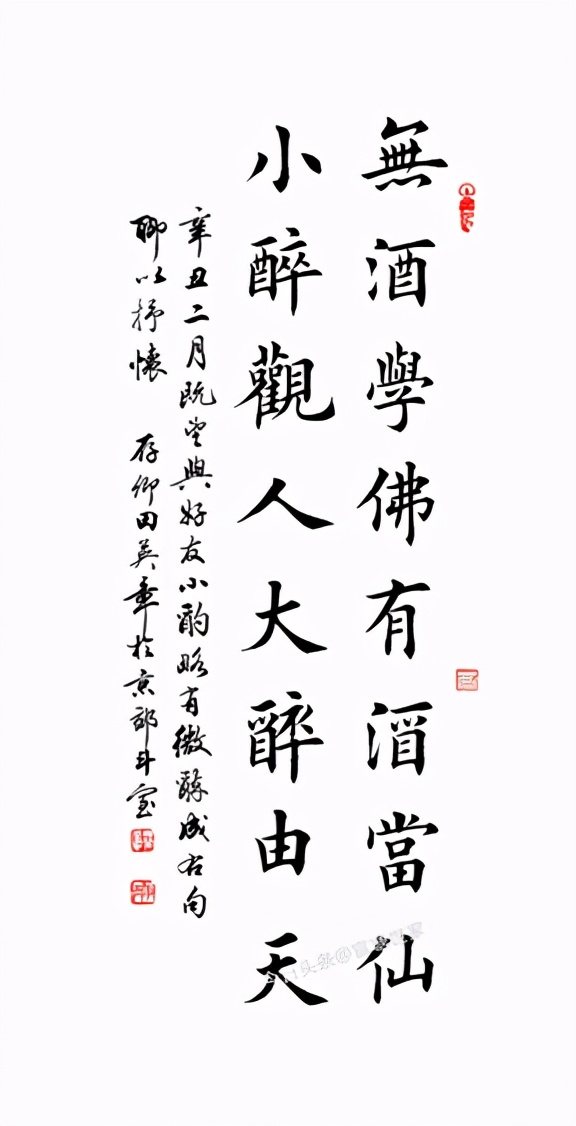 無酒學佛有酒當仙
小醉觀人大醉由天
辛丑二月既望與好友小酌略有微醉成右句
聊以抒懷 存卿田英章於京郊斗室